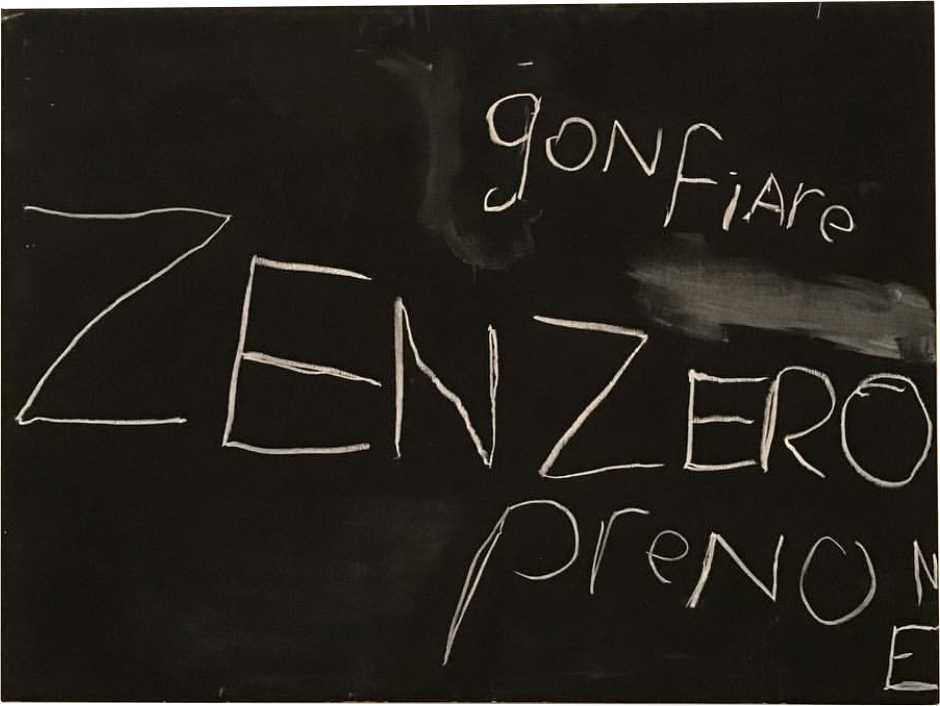 gonfiare
ZENZERO
preNO N
E